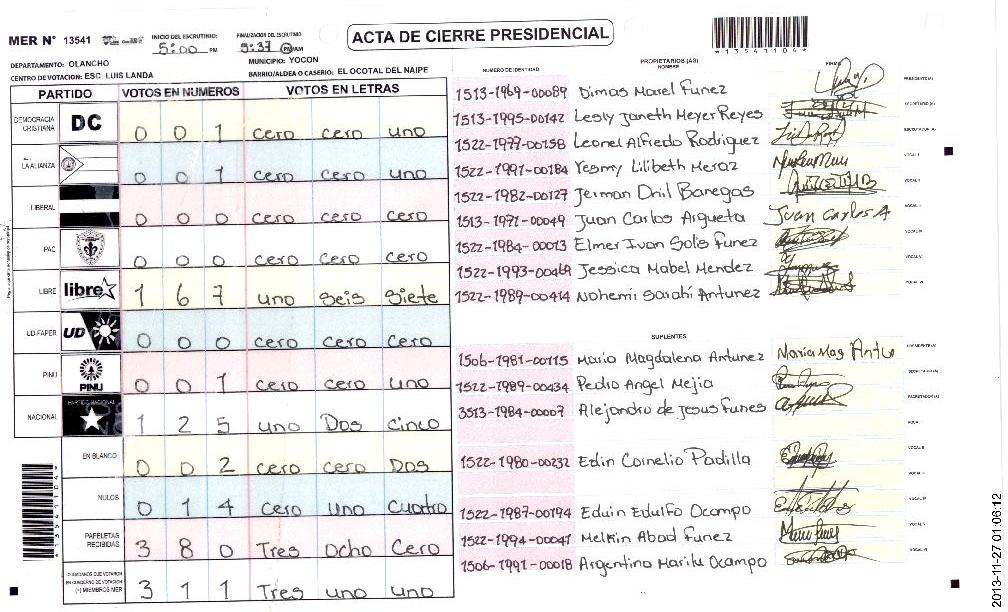 MER N° 13541
INICIO DEL ESCRUTINIO: 5:00 PM
FINALIZACION DEL ESCRUTINIO 9:37 PM/AM
ACTA DE CIERRE PRESIDENCIAL
*13541104*
DEPARTAMENTO: OLANCHO
MUNICIPIO: YOCON
CENTRO DE VOTACION: ESC. LUIS LANDA
BARRIO/ALDEA O CASERIO: EL OCOTAL DEL NAIPE
PARTIDO VOTOS EN NUMEROS VOTOS EN LETRAS
DEMOCRACIA CRISTIANA DC 0 0 1 cero cero uno
LA ALIANZA 0 0 1 cero cero uno
LIBERAL 0 0 0 cero cero cero
PAC 0 0 0 cero cero cero
LIBRE libre 1 6 7 uno seis siete
UD-FAPER UD 0 0 0 cero cero cero
PINU PINU 0 0 1 cero cero uno
NACIONAL PARTIDO NACIONAL 1 2 5 uno Dos cinco
EN BLANCO 0 0 2 cero cero Dos
NULOS 0 1 4 cero uno cuatro
PAPELETAS RECIBIDAS 3 8 0 Tres ocho Cero
CIUDADANOS QUE VOTARON EN CUADERNO DE VOTACION (+) MIEMBROS MER 3 1 1 Tres uno uno
PROPIETARIOS (AS)
NUMERO DE IDENTIDAD NOMBRE FIRMA
1513-1969-00089 Dimas Marel Funez PRESIDENTE(A)
1513-1995-00142 Lesly Janeth Meyer Reyes SECRETARIO(A)
1522-1977-00158 Leonel Alfredo Rodriguez ESCRUTADOR(A)
1522-1991-00184 Yesmy Lilibeth Meraz VOCAL I
1522-1982-00127 Jerman Dnil Banegas VOCAL II
1513-1971-00049 Juan Carlos Argueta Juan Carlos A.
1522-1984-00013 Elmer Ivan Solis Funez
1522-1993-00469 Jessica Mabel Mendez
1522-1989-00414 Nohemi Sarahí Antunez
SUPLENTES
1506-1981-00115 Maria Magdalena Antunez Maria Mag Antu
1522-1989-00434 Pedro Angel Mejia
3513-1984-00007 Alejandro de Jesus Funes
1522-1980-00232 Edin Cornelio Padilla
1522-1987-00194 Eduin Edulfo Ocampo
1522-1994-00041 Melkin Abad Funez
1506-1991-00018 Argentina Marilu Ocampo
2013-11-27 01:06:12